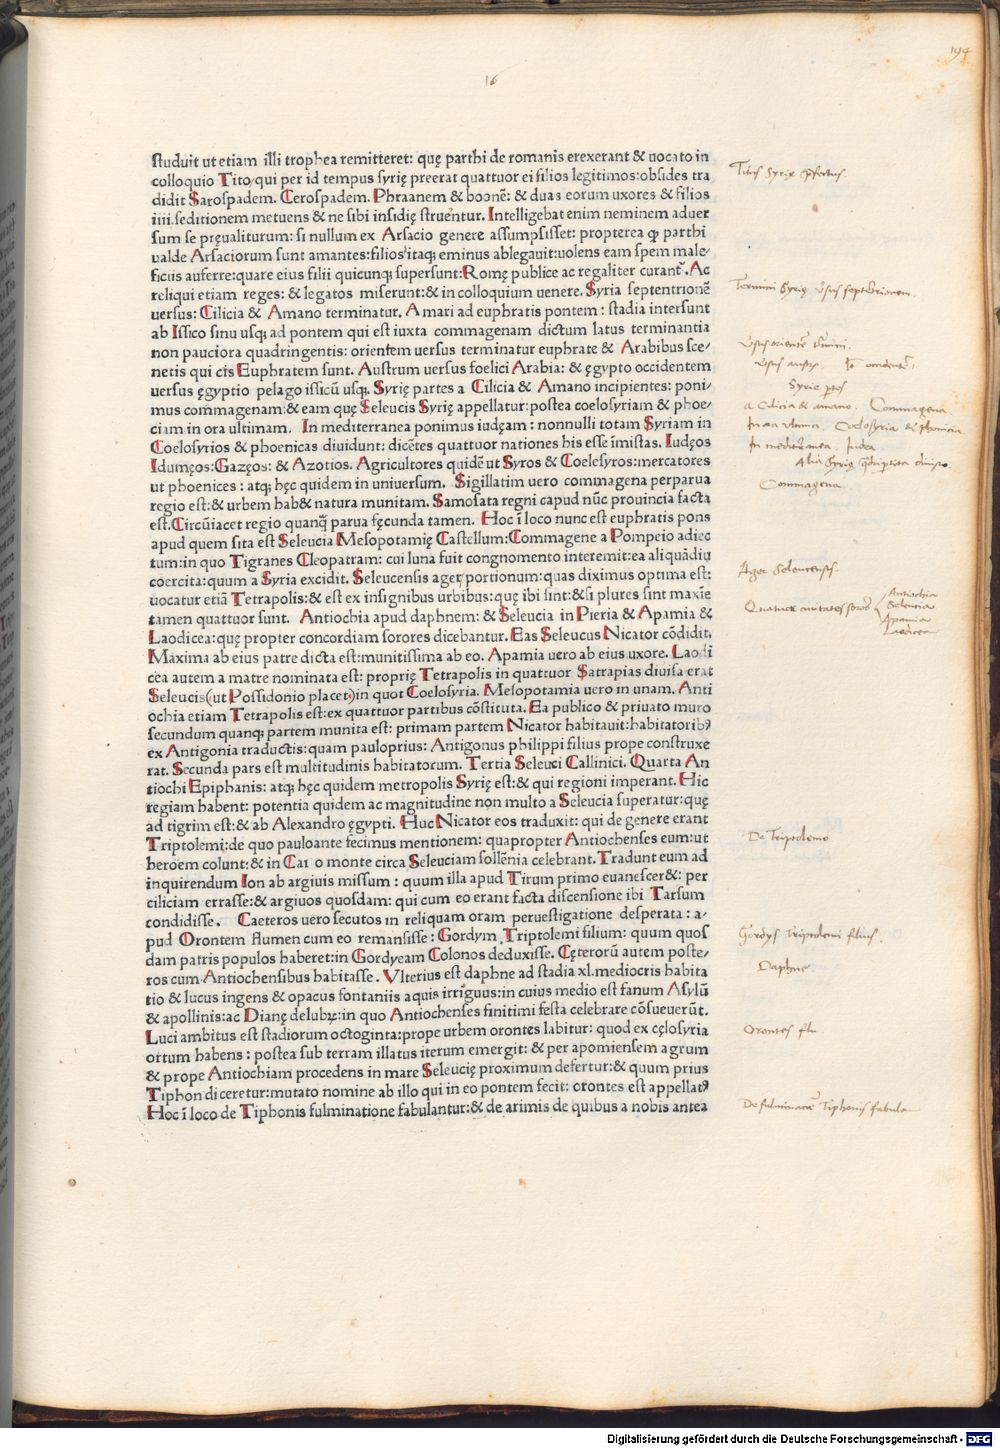 194
16
ſtuduit ut etiam illi trophea remitteret: quę parthi de romanis erexerant & uocato in
colloquio Tito/qui per id tempus ſyrię preerat quattuor ei filios legitimos:obſides tra
didit Saroſpadem. Ceroſpadem. Phraanem & boonē: & duas eorum uxores & filios
iiii.ſeditionem metuens & ne ſibi inſidię ſtruentur. Intelligebat enim neminem aduer
ſum ſe pręualiturum: ſi nullum ex Arſacio genere aſſumpſiſſet: propterea ꝙ parthi
ualde Arſaciorum ſunt amantes:filios itaqꝫ eminus ablegauit:uolens eam ſpem male/
ficiis auferre:quare eius filii quicunqꝫ ſuperſunt:Romę publice ac regaliter curant᷑. Ac
reliqui etiam reges: & legatos miſerunt:& in colloquium uenere. Syria ſeptentrionē
uerſus: Cilicia & Amano terminatur. Amari ad euphratis pontem : ſtadia interſunt
ab Iſſico ſinu uſqꝫ ad pontem qui eſt iuxta commagenam dictum latus terminantia
non pauciora quadringentis: orientem uerſus terminatur euphrate & Arabibus ſce/
netis qui cis Euphratem ſunt. Auſtrum uerſus foelici Arabia: & ęgypto occidentem
uerſus ęgyptio pelago iſſicū uſqꝫ. Syrię partes a Cilicia & Amano incipientes: poni/
mus commagenam:& eam quę Seleucis Syrię appellatur:poſtea coeloſyriam & phoe/
ciam in ora ultimam. In mediterranea ponimus iudęam : nonnulli totam Syriam in
Coeloſyrios & phoenicas diuidunt: dicētes quattuor nationes his eſſe īmiſtas. Iudęos
Idumęos:Gazęos: & Azotios. Agricultores quidē ut Syros & Coeleſyros:mercatores
ut phoenices : atqꝫ hęc quidem in uniuerſum. Sigillatim uero commagena perparua
regio eſt:& urbem hab& natura munitam. Samoſata regni caput nūc prouincia facta
eſt.Circūiacet regio quanqꝫ parua fęcunda tamen. Hoc ī loco nunc eſt euphratis pons
apud quem ſita eſt Seleucia Meſopotamię Caſtellum:Commagene a Pompeio adiec
tum:in quo Tigranes Cleopatram: cui luna fuit congnomento interemit:ea aliquādiu
coercita:quum a Syria excidit. Seleucenſis ager portionum:quas diximus optima eſt:
uocatur etiā Tetrapolis:& eſt ex inſignibus urbibus:quę ibi ſint:&ſi plures ſint maxīe
tamen quattuor ſunt. Antiochia apud daphnem: & Seleucia in Pieria & Apamia &
Laodicea:quę propter concordiam ſorores dicebantur. Eas Seleucus Nicator cōdidit.
Maxima ab eius patre dicta eſt:munitiſſima ab eo. Apamia uero ab eius uxore. Laodi
cea autem a matre nominata eſt: proprię Tetrapolis in quattuor Satrapias diuiſa erat
Seleucis(ut Poſſidonio placet)in quot Coeloſyria. Meſopotamia uero in unam. Anti
ochia etiam Tetrapolis eſt:ex quattuor partibus cōſtituta. Ea publico & priuato muro
ſecundum quanqꝫ partem munita eſt: primam partem Nicator habitauit:habitatoribꝰ
ex Antigonia traductis:quam pauloprius: Antigonus philippi filius prope conſtruxe
rat. Secunda pars eſt multitudinis habitatorum. Tertia Seleuci Callinici. Quarta An
tiochi Epiphanis: atqꝫ hęc quidem metropolis Syrię eſt:& qui regioni imperant. Hic
regiam habent: potentia quidem ac magnitudine non multo a Seleucia ſuperatur:quę
ad tigrim eſt:& ab Alexandro ęgypti. Huc Nicator eos traduxit: qui de genere erant
Triptolemi:de quo pauloante fecimus mentionem: quapropter Antiochenſes eum:ut
heroem colunt:& in Ca o monte circa Seleuciam ſollēnia celebrant. Tradunt eum ad
inquirendum Ion ab argiuis miſſum : quum illa apud Tirum primo euaneſcer&: per
ciliciam erraſſe:& argiuos quoſdam: qui cum eo erant facta diſcenſione ibi Tarſum
condidiſſe. Caeteros uero ſecutos in reliquam oram perueſtigatione deſperata : a/
pud Orontem flumen cum eo remanſiſſe : Gordym Triptolemi filium: quum quoſ
dam patris populos haberet:in Gordyeam Colonos deduxiſſe. Cęterorū autem poſte/
ros cum Antiochenſibus habitaſſe. Vlterius eſt daphne ad ſtadia xl.mediocris habita
tio & lucus ingens & opacus fontaniis aquis irriguus:in cuius medio eſt fanum Aſylū
& apollinis:ac Dianę delubꝝ:in quo Antiochenſes finitimi feſta celebrare cōſueuerūt.
Luci ambitus eſt ſtadiorum octoginta:prope urbem orontes labitur: quod ex cęloſyria
ortum habens : poſtea ſub terram illatus iterum emergit: & per apomienſem agrum
& prope Antiochiam procedens in mare Seleucię proximum defertur:& quum prius
Tiphon diceretur:mutato nomine ab illo qui in eo pontem fecit: orontes eſt appellatꝰ
Hoc ī loco de Tiphonis fulminatione fabulantur:& de arimis de quibus a nobis antea
Titus Syrię p̄fectus
Termini Syrię Vſus ſeptētrionem.
Vſus orientē
Vſus auſtrū. occidentē
Syrię p̄tes
a Cilicia & amano. Commagena
In ora ultima. Coeloſyria & Phœnicia
In mediterranea. Iudea.
Alia Syrię diuiſio.
Commagena
Ager Seleucenſis.
Quatuor ciuitates ſorores
Antiochia
Seleucia
Apamia
Laodicea
De Triptolemo
Gordys Triptolemi filius.
Daphne
Orontes flu.
De fulminatōe Tiphonis fabula
Digitalisierung gefördert durch die Deutsche Forschungsgemeinschaft - DFG